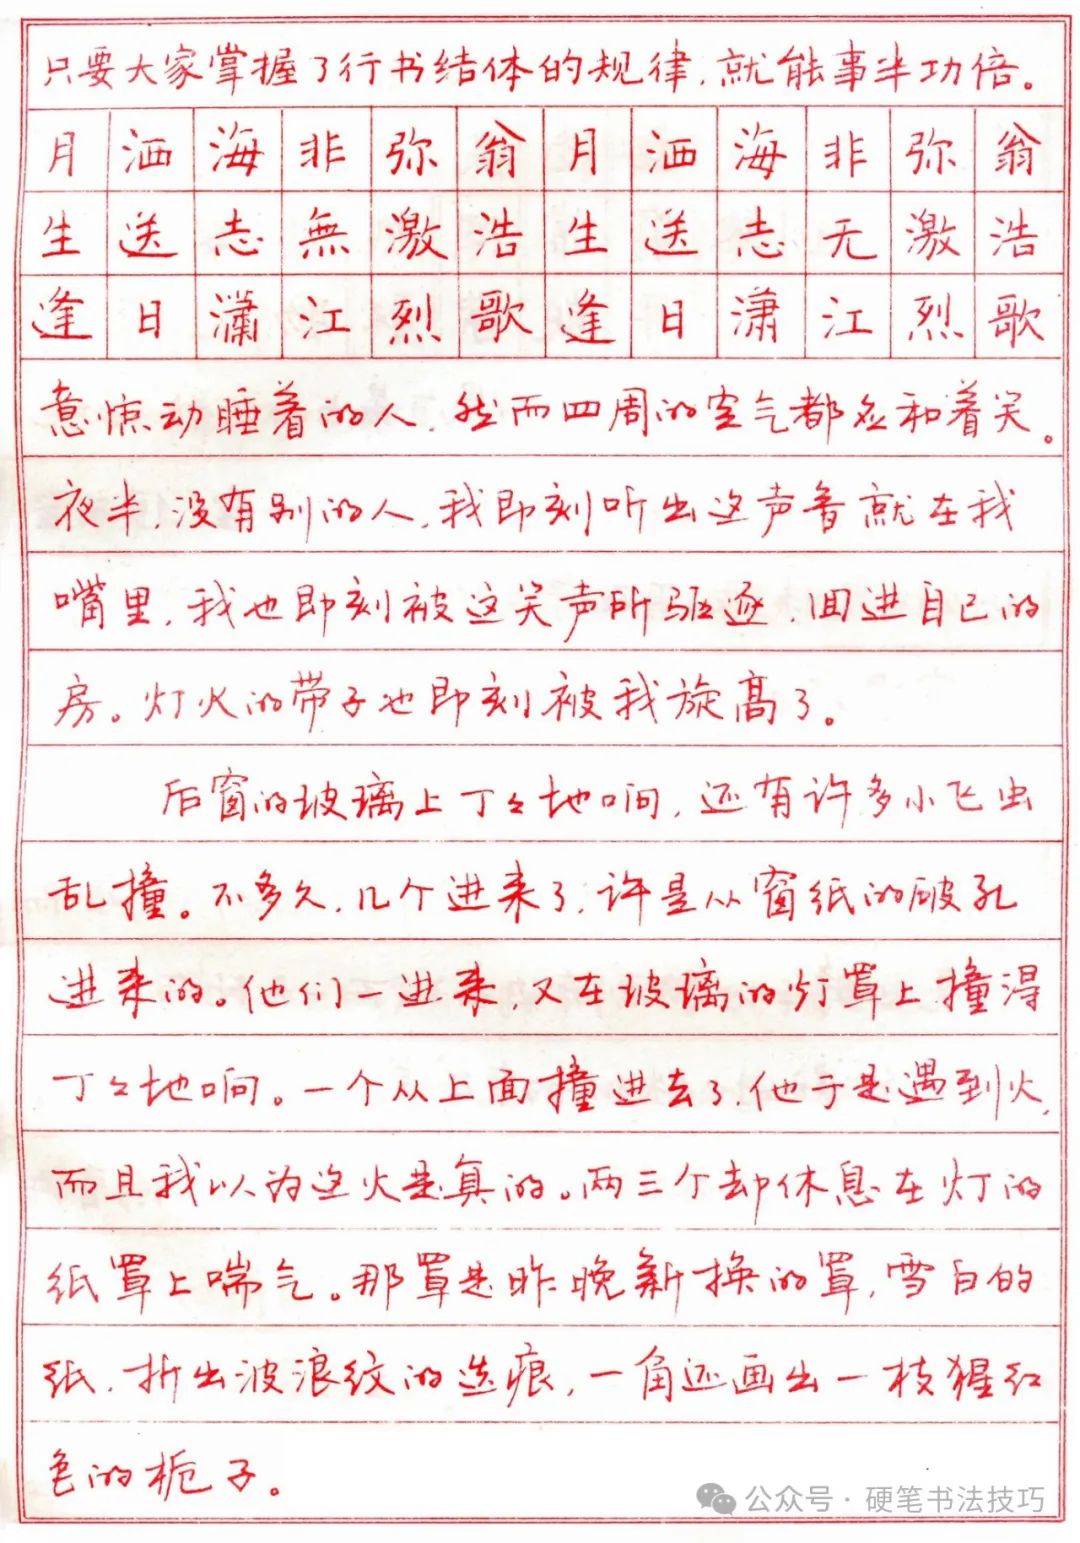 只要大家掌握了行书结体的规律，就能事半功倍。
月洒海非弥翁月洒海非弥翁
生送志無激浩生送志无激浩
逢日瀟江烈歌逢日潇江烈歌
意惊动睡着的人，然而四周的空气都应和着笑。
夜半，没有别的人，我即刻听出这声音就在我
嘴里，我也即刻被这笑声所驱逐，回进自己的
房。灯火的带子也即刻被我旋高了。
后窗的玻璃上丁々地响，还有许多小飞虫
乱撞。不多久，几个进来了，许是从窗纸的破孔
进来的。他们一进来，又在玻璃的灯罩上撞得
丁々地响。一个从上面撞进去了，他于是遇到火，
而且我以为这火是真的。两三个却休息在灯的
纸罩上喘气。那罩是昨晚新换的罩，雪白的
纸，折出波浪纹的迭痕，一角还画出一枝猩红
色的栀子。
公众号·硬笔书法技巧